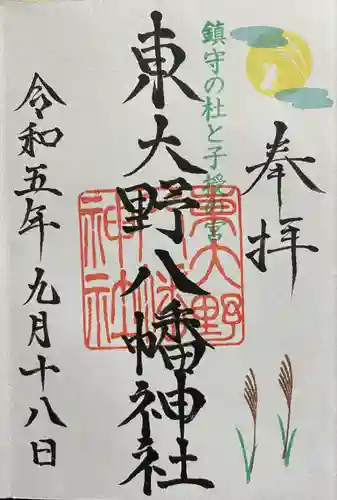 奉拝
鎮守の杜と子授の宮
東大野八幡神社
東大野八幡神社
令和五年九月十八日